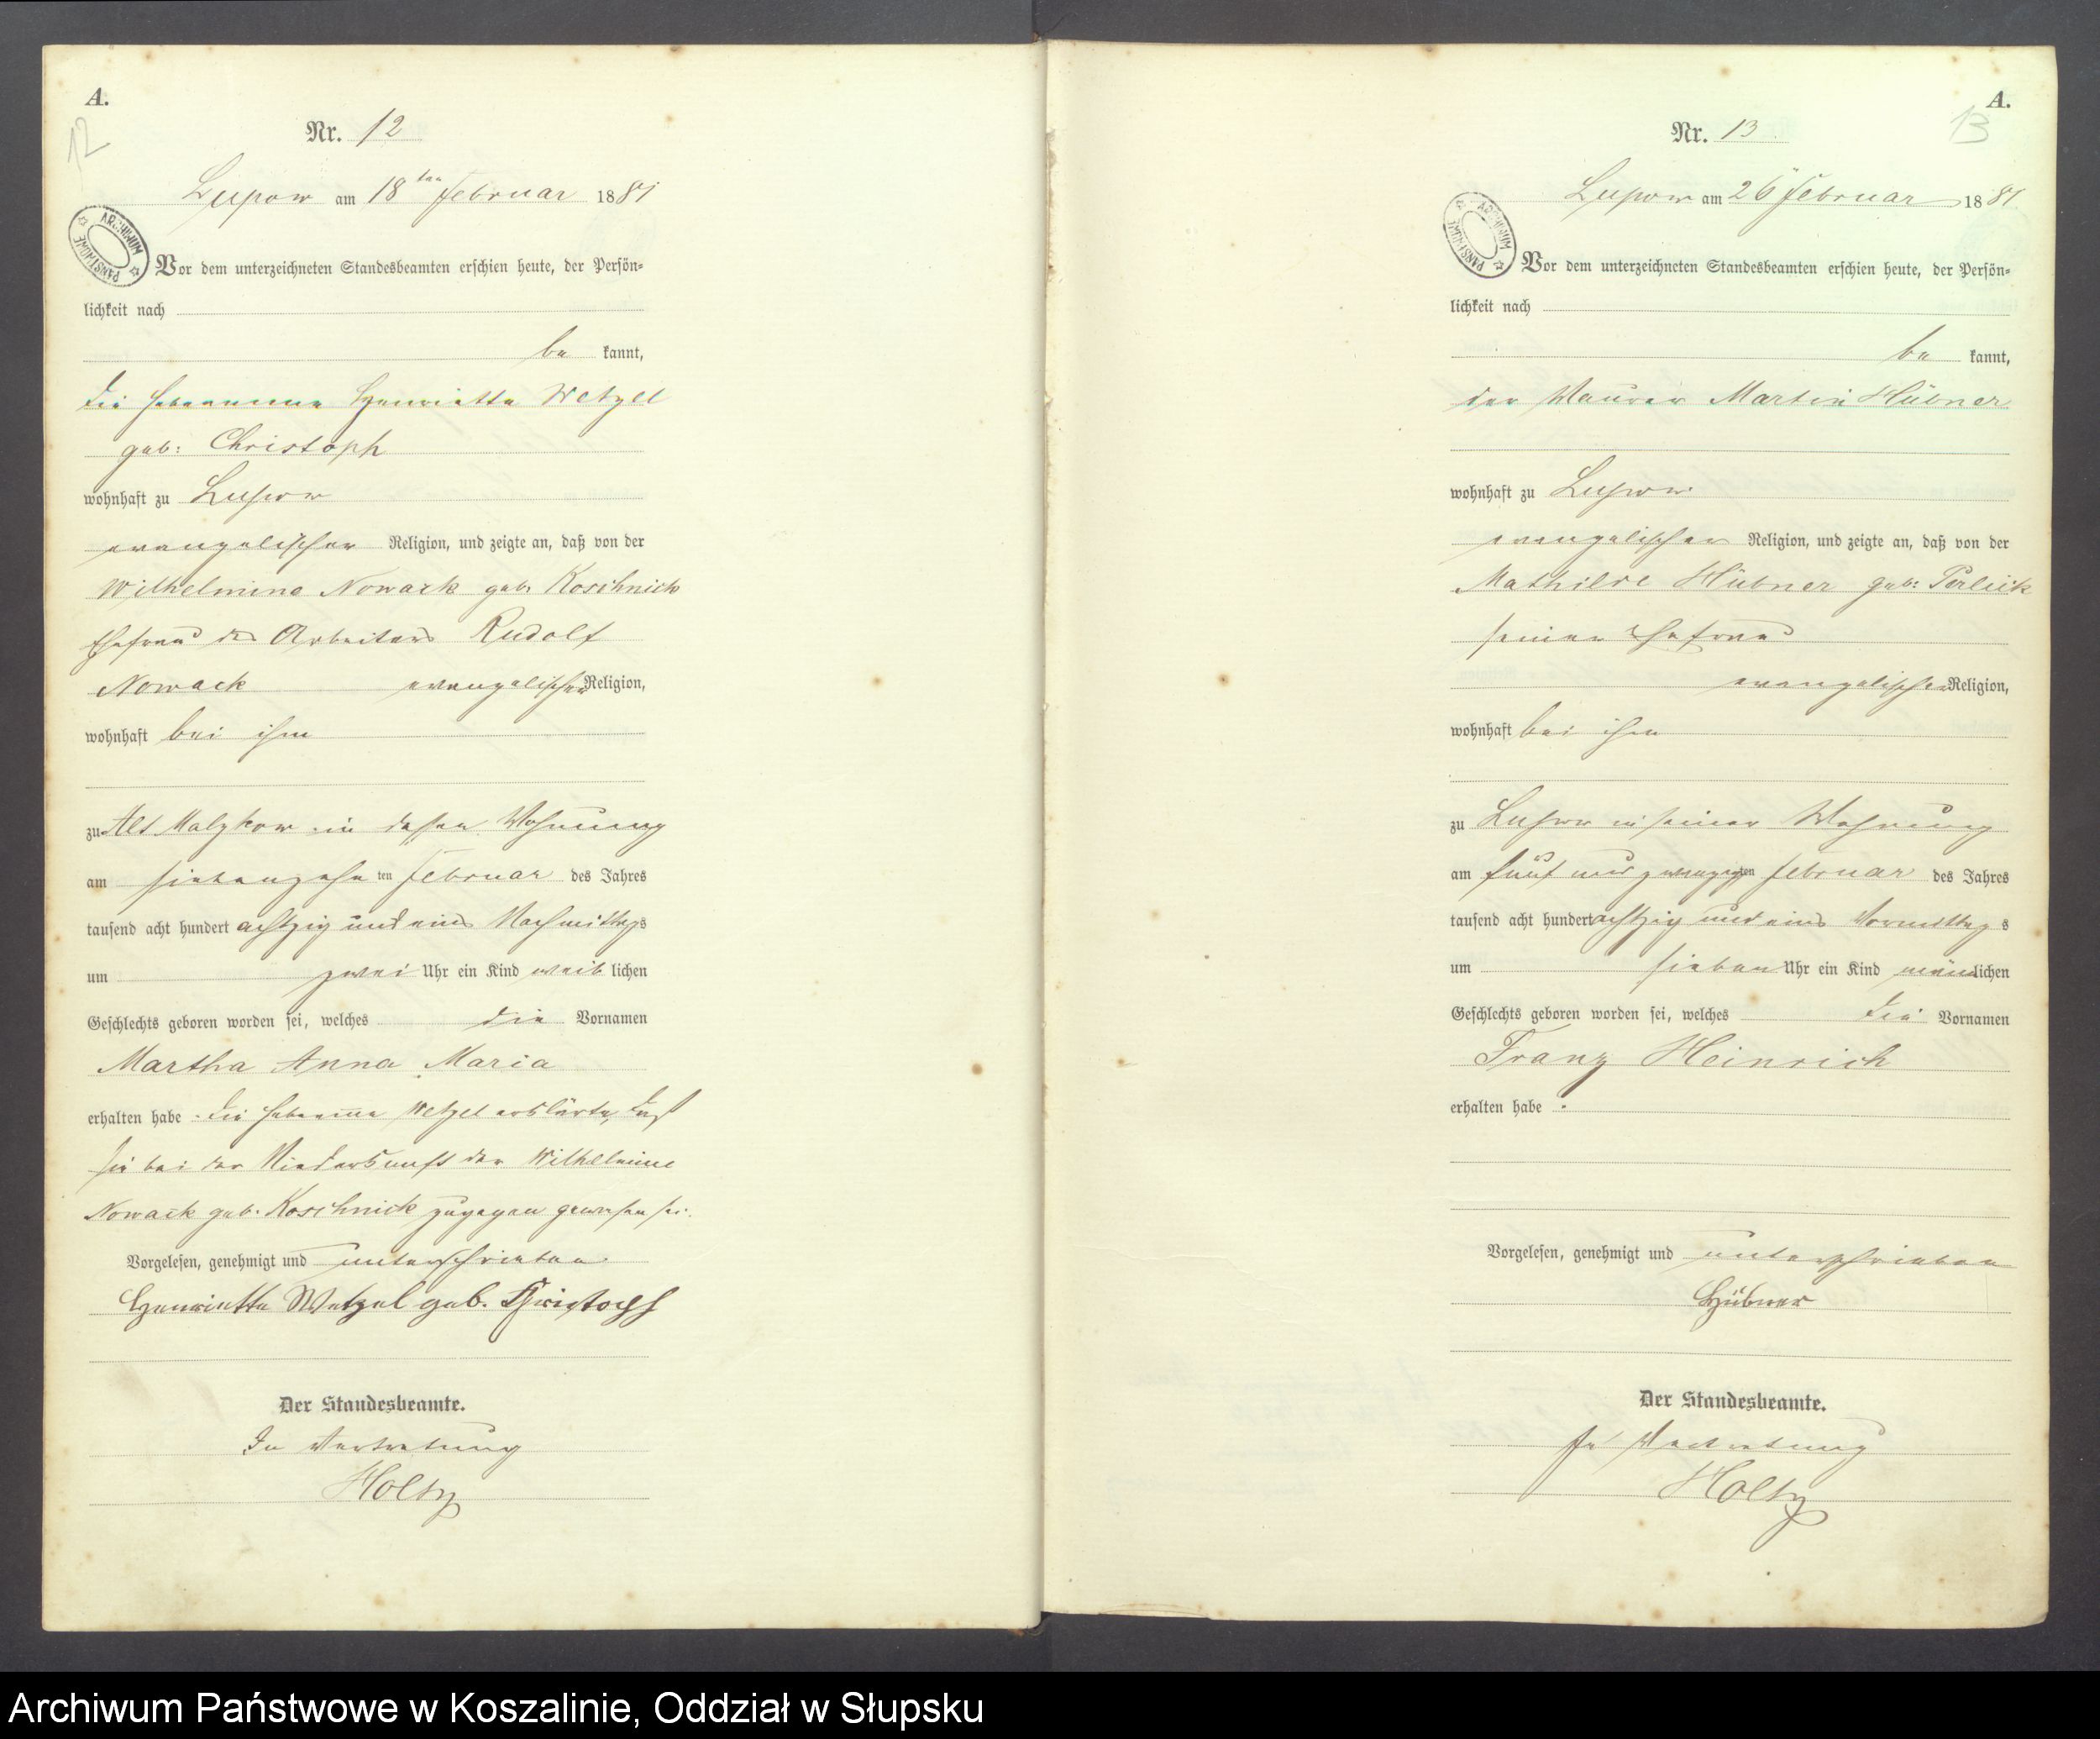 A.
12
Nr. 12
Lupow am 18ten Februar 1881
ARCHIWUM PAŃSTWOWE
Vor dem unterzeichneten Standesbeamten erschien heute, der Persön-
lichkeit nach
be kannt,
die Hebeamme Henriette Wetzel
geb: Christoph
wohnhaft zu Lupow
evangelischer Religion, und zeigte an, daß von der
Wilhelmine Nowack geb. Koschnick
Ehefrau des Arbeiters Rudolf
Nowack evangelischer Religion,
wohnhaft bei ihm
zu Alt Malzkow in dessen Wohnung
am siebenzehn ten Februar des Jahres
tausend acht hundert achtzig und eins Nachmittags
um zwei Uhr ein Kind weib lichen
Geschlechts geboren worden sei, welches die Vornamen
Martha Anna Maria
erhalten habe. die Hebeamme Wetzel erklärte, daß
sie bei der Niederkunft der Wilhelmine
Nowack geb. Koschnick zugegen gewesen sei.
Vorgelesen, genehmigt und unterschrieben
Henriette Wetzel geb. Christoph
Der Standesbeamte.
In Vertretung
Holtz
A.
13
Nr. 13
Lupow am 26 Februar 1881
ARCHIWUM PAŃSTWOWE
Vor dem unterzeichneten Standesbeamten erschien heute, der Persön-
lichkeit nach
be kannt,
der Maurer Martin Hübner
wohnhaft zu Lupow
evangelischer Religion, und zeigte an, daß von der
Mathilde Hübner geb: Perlick
seiner Ehefrau
evangelischer Religion,
wohnhaft bei ihm
zu Lupow in seiner Wohnung
am fünf und zwanzigsten Februar des Jahres
tausend acht hundert achtzig und eins Vormittag s
um sieben Uhr ein Kind männlichen
Geschlechts geboren worden sei, welches die Vornamen
Franz Heinrich
erhalten habe.
Vorgelesen, genehmigt und unterschrieben
Hübner
Der Standesbeamte.
In Vertretung
Holtz
Archiwum Państwowe w Koszalinie, Oddział w Słupsku